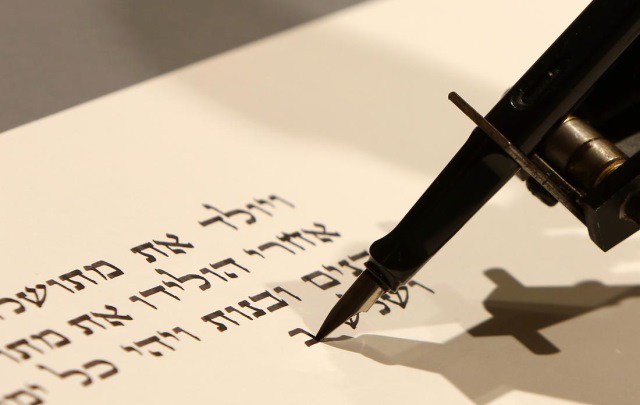 ויולד את מתושל
אחרי הולידו את מתו
בנים ובנות ויהי כל ימ